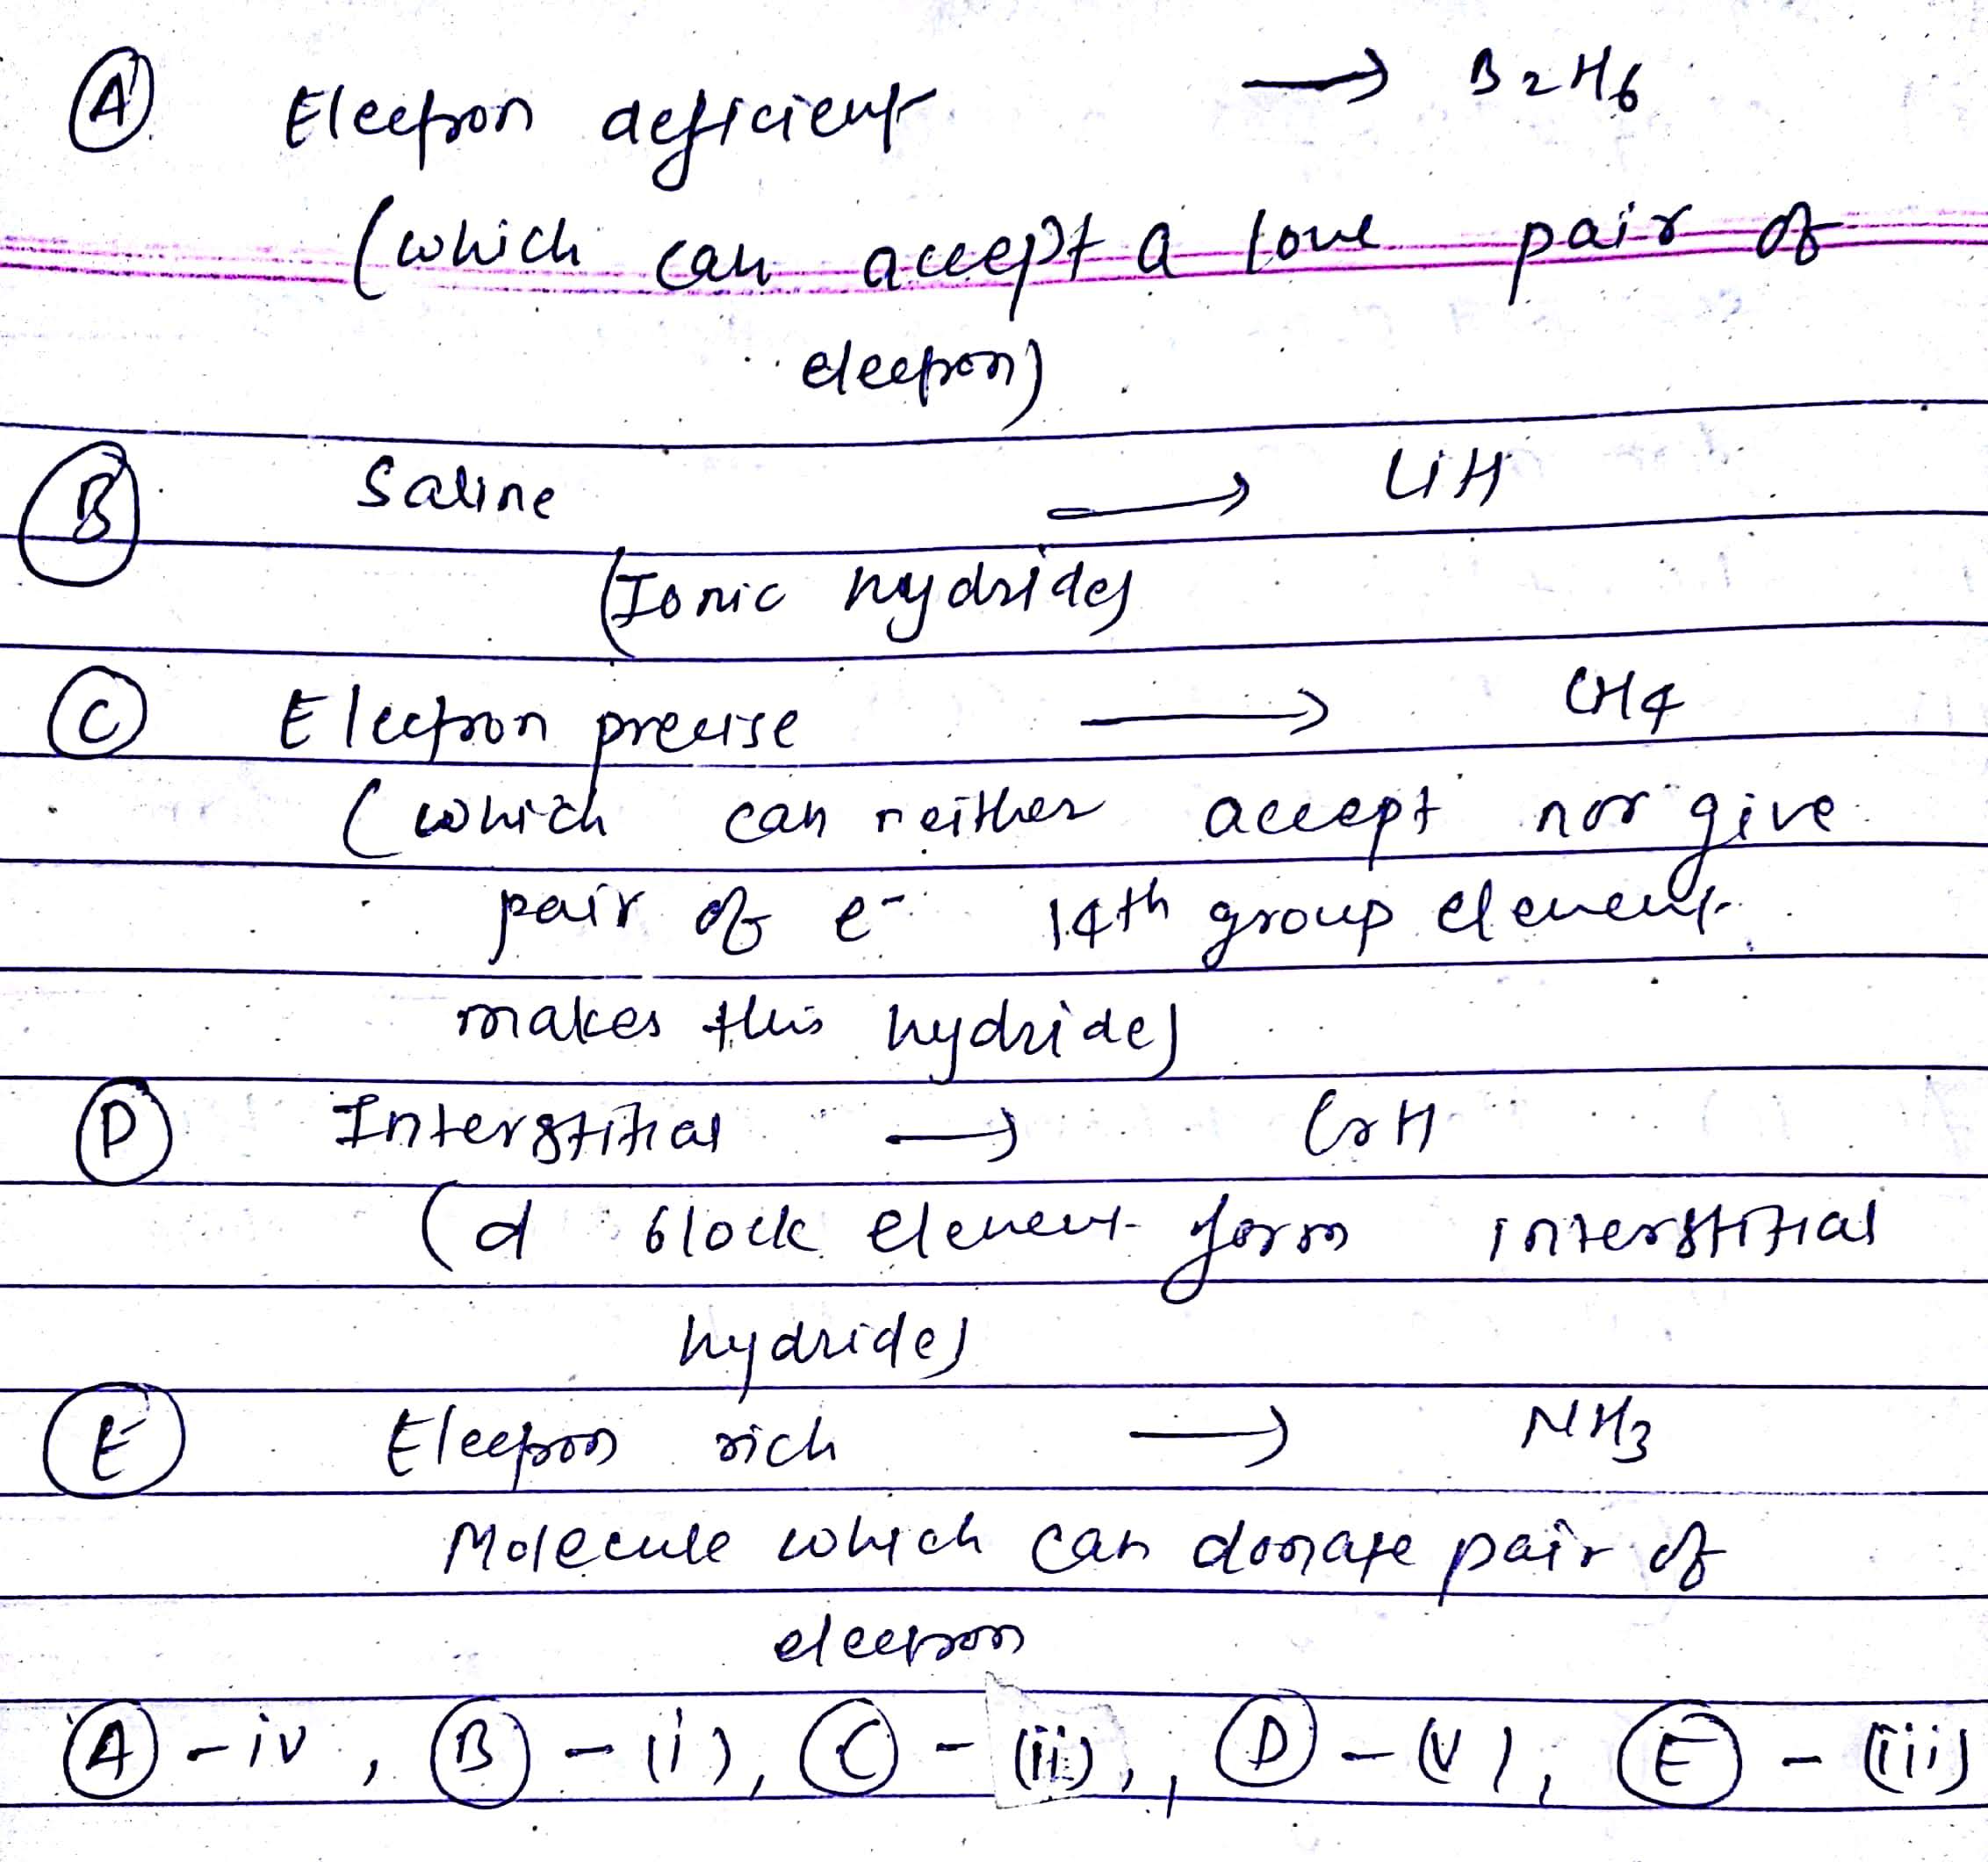 (A) Electron deficient → B2H6
(which can accept a lone pair of
electron)
(B) Saline → LiH
(Ionic hydride)
(C) Electron precise → CH4
(which can neither accept nor give
pair of e- 14th group element
makes this hydride)
(D) Interstitial → CrH
(d block element form interstitial
hydride)
(E) Electron rich → NH3
Molecule which can donate pair of
electron
(A) - iv, (B) - (i), (C) - (ii), (D) - (v), (E) - (iii)